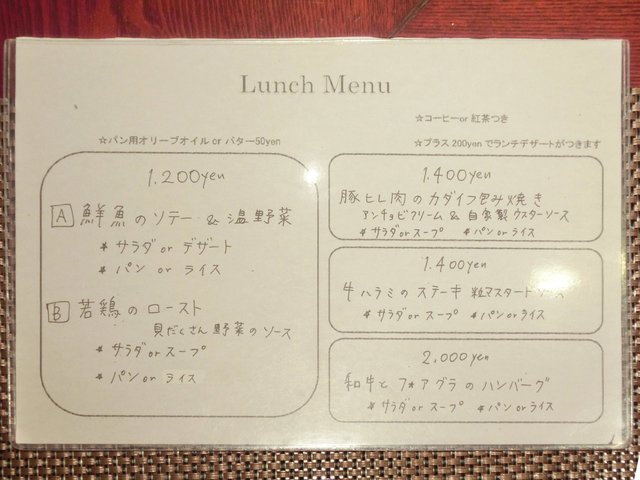 Lunch Menu
☆コーヒーor 紅茶つき
☆パン用オリーブオイル or バター50yen
☆プラス 200yen でランチデザートがつきます
1.200yen
A 鮮魚のソテー & 温野菜
* サラダ or デザート
* パン or ライス
B 若鶏のロースト
具だくさん野菜のソース
* サラダ or スープ
* パン or ライス
1.400yen
豚ヒレ肉のカダイフ包み焼き
アンチョビクリーム & 自家製ウスターソース
* サラダ or スープ * パン or ライス
1.400yen
牛ハラミのステーキ 粒マスタードソース
* サラダ or スープ * パン or ライス
2.000yen
和牛とフォアグラのハンバーグ
* サラダ or スープ * パン or ライス